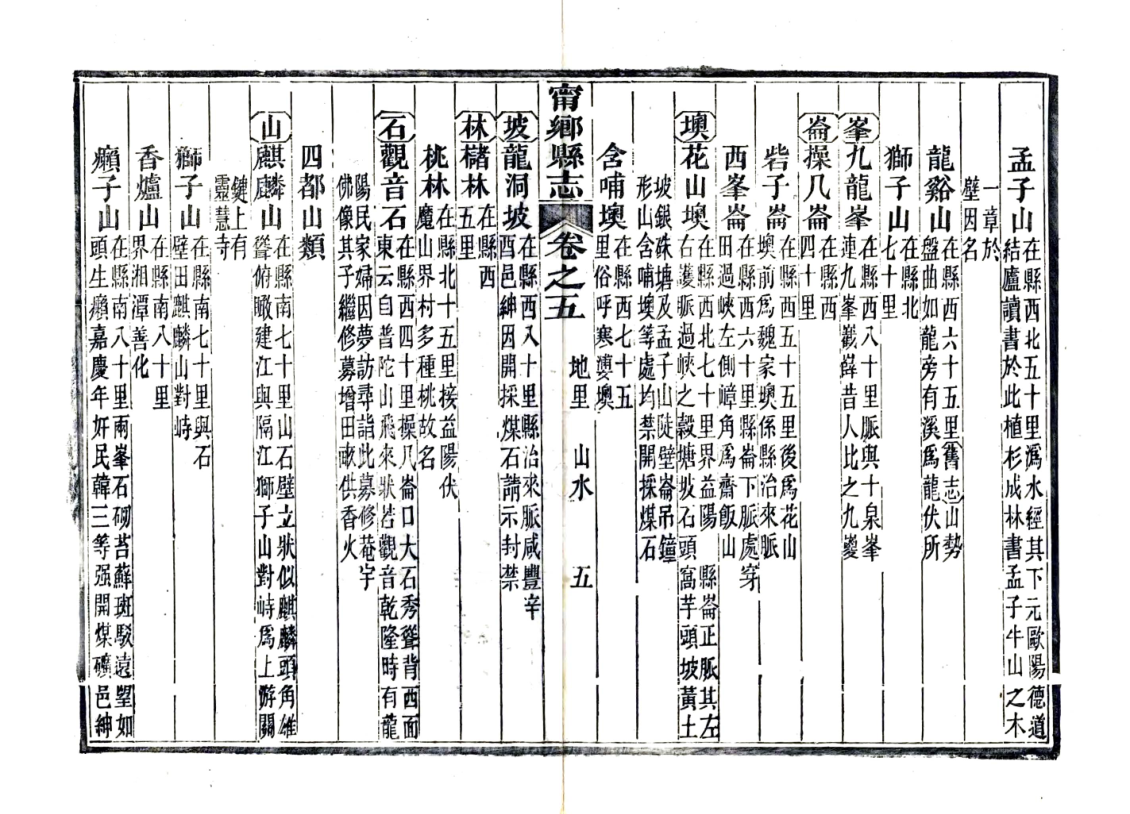 孟子山
在縣西北五十里溈水經其下元歐陽德道
結廬讀書於此植杉成林書孟子牛山之木
一章於
壁因名
龍谿山
在縣西六十五里舊志山勢
盤曲如龍旁有溪爲龍伏所
獅子山
在縣北
七十里
峯九龍峯
在縣西八十里脈與十泉峯
連九峯巀嶭昔人比之九嵏
崙操几崙
在縣西
四十里
砦子崙
在縣西五十五里後爲花山
墺前爲魏家墺係縣治來脈
西峯崙
在縣西六十里縣崙下脈處穿
田過峽左側嶂角爲齋飯山
墺花山墺
在縣西北七十里界益陽　縣崙正脈其左
右護脈過峽之穀塘坡石頭窩芋頭坡黃土
坡銀硃塘及孟子山陡壁崙吊鐘
形山含哺墺等處均禁開採煤石
含哺墺
在縣西七十五
里俗呼寒婆墺
甯鄉縣志　卷之五　地里　山水　五
坡龍洞坡
在縣西八十里縣治來脈咸豐辛
酉邑紳因開採煤石請示封禁
林櫧林
在縣西
五里
桃林
在縣北十五里接益陽伏
魔山界村多種桃故名
石觀音石
在縣西四十里操几崙口大石秀聳背西面
東云自普陀山飛來狀若觀音乾隆時有龍
陽民家婦因夢訪尋詣此募修菴宇
佛像其子繼修募增田畝供香火
四都山類
山麒麟山
在縣南七十里山石壁立狀似麒麟頭角雄
聳俯瞰建江與隔江獅子山對峙爲上游關
鍵上有
靈慧寺
獅子山
在縣南七十里與石
壁田麒麟山對峙
香爐山
在縣南八十里
界湘潭善化
癩子山
在縣南八十里兩峯石砌苔蘚斑駁遠望如
頭生癩嘉慶年奸民韓三等强開煤礦邑紳